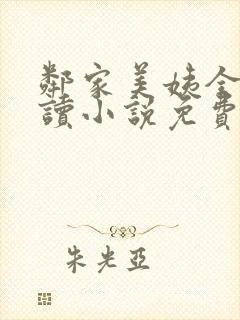 鄰家美姨全
讀小說免費
朱光亞